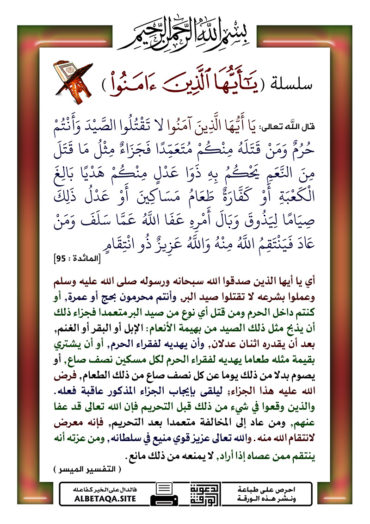 بسم الله الرحمن الرحيم
سلسلة (يَـٰٓأَيُّهَا ٱلَّذِينَ ءَامَنُوا۟)
قال الله تعالى: يَا أَيُّهَا الَّذِينَ آمَنُوا لَا تَقْتُلُوا الصَّيْدَ وَأَنْتُمْ
حُرُمٌ وَمَنْ قَتَلَهُ مِنْكُمْ مُتَعَمِّدًا فَجَزَاءٌ مِثْلُ مَا قَتَلَ
مِنَ النَّعَمِ يَحْكُمُ بِهِ ذَوَا عَدْلٍ مِنْكُمْ هَدْيًا بَالِغَ
الْكَعْبَةِ أَوْ كَفَّارَةٌ طَعَامُ مَسَاكِينَ أَوْ عَدْلُ ذَلِكَ
صِيَامًا لِيَذُوقَ وَبَالَ أَمْرِهِ عَفَا اللَّهُ عَمَّا سَلَفَ وَمَنْ
عَادَ فَيَنْتَقِمُ اللَّهُ مِنْهُ وَاللَّهُ عَزِيزٌ ذُو انْتِقَامٍ [المائدة : 95]
أي يا أيها الذين صدقوا الله سبحانه ورسوله صلى الله عليه وسلم
وعملوا بشرعه لا تقتلوا صيد البر, وأنتم محرمون بحج أو عمرة, أو
كنتم داخل الحرم ومن قتل أي نوع من صيد البر متعمدا فجزاء ذلك
أن يذبح مثل ذلك الصيد من بهيمة الأنعام: الإبل أو البقر أو الغنم,
بعد أن يقدره اثنان عدلان, وأن يهديه لفقراء الحرم, أو أن يشتري
بقيمة مثله طعاما يهديه لفقراء الحرم لكل مسكين نصف صاع, أو
يصوم بدلا من ذلك يوما عن كل نصف صاع من ذلك الطعام, فرض
الله عليه هذا الجزاء; ليلقى بإيجاب الجزاء المذكور عاقبة فعله.
والذين وقعوا في شيء من ذلك قبل التحريم فإن الله تعالى قد عفا
عنهم, ومن عاد إلى المخالفة متعمدا بعد التحريم, فإنه معرض
لانتقام الله منه. والله تعالى عزيز قوي منيع في سلطانه, ومن عزته أنه
ينتقم ممن عصاه إذا أراد, لا يمنعه من ذلك مانع.
( التفسير الميسر )
احرص على طباعة
ونشر هذه الورقة
الدعوية
الورقة
فالدال على الخير كفاعله
ALBETAQA.SITE